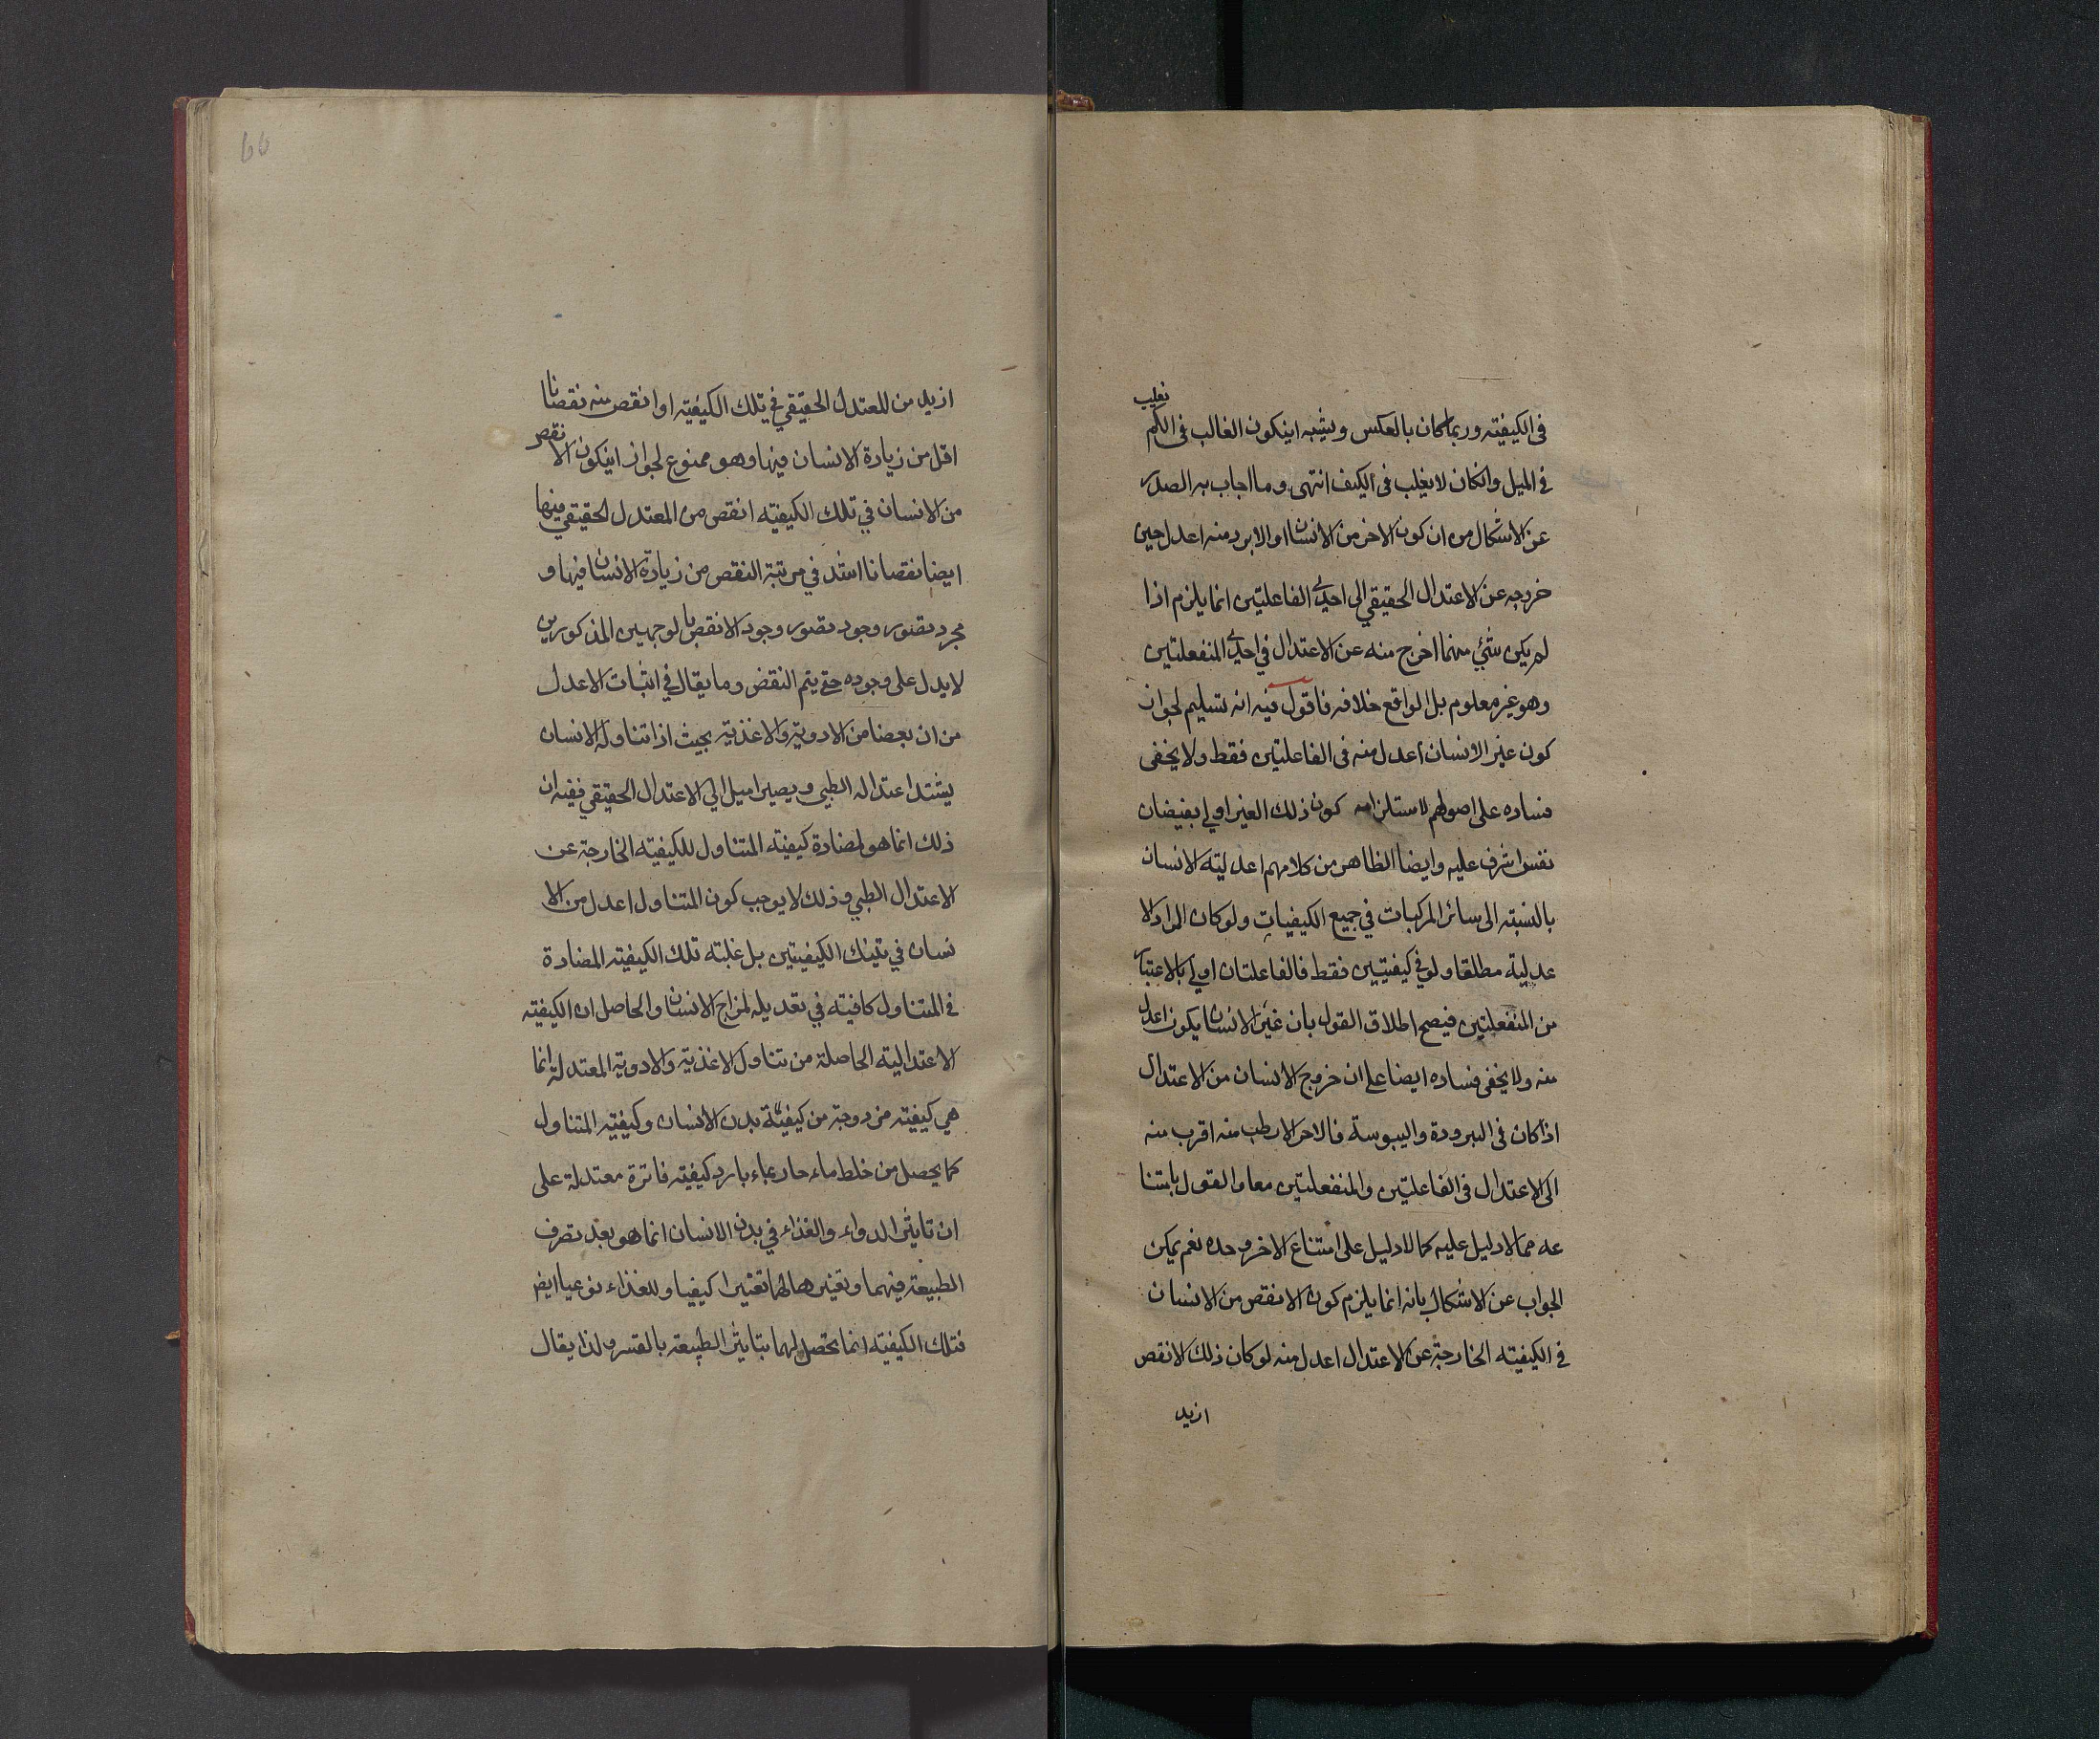 في الكيفيته وربما كان بالعكس ويشبه اينكون الغالب في الكم يغلب
في الميل وانكان لا يغلب في الكيف انتهى وما اجاب به الصدر
عن الاشكال من ان كون الاخر من الانسان او الابرد منه اعدل حين
خروجه عن الاعتدال الحقيقي الى احدى الفاعليتين انما يلزم اذا
لم يكن شئ منهما اخرج منه عن الاعتدال في احدى المنفعلتين
وهو غير معلوم بل الواقع خلافه فاقول فيه انه تسليم لجواز
كون غير الانسان اعدل منه في الفاعليتين فقط ولا يخفى
فساده على اصولهم لاستلزامه كون ذلك الغير اولى بفيضان
نفس اشرف عليه وايضا الظاهر من كلامهم اعدليته الانسان
بالنسبته الى سائر المركبات في جميع الكيفيات ولو كان المراد الا
عدلية مطلقا ولو في كيفيتين فقط فالفاعلتان اولى بالاعتبار
من المنفعلتين فيصح اطلاق القول بان غير الانسان يكون اعدل
منه ولا يخفى فساده ايضا على ان خروج الانسان من الاعتدال
اذا كان في البرودة واليبوسة فالاحر الارطب منه اقرب منه
الى الاعتدال في الفاعليتين والمنفعلتين معا والقول بامتنا
عه مما لا دليل عليه كما لا دليل على امتناع الاخر وحده نعم يمكن
الجواب عن الاشكال بانه انما يلزم كون الانقص من الانسان
في الكيفيته الخارجة عن الاعتدال اعدل منه لو كان ذلك الانقص
ازيد
66
ازيد من المعتدل الحقيقي في تلك الكيفيته او انقص منه نقصانا
اقل من زيادة الانسان فيها وهو ممنوع لجواز اينكون الا نقص
من الانسان في تلك الكيفيته انقص من المعتدل الحقيقي فيها
ايضا نقصانا اشد في مرتبة النقص من زيادة الانسان فيها و
مجرد تصور وجود تصور وجود الانقص بالوجهين المذكورين
لا يدل على وجوده حتى يتم النقض وما يقال في اثبات الاعدل
من ان بعضا من الادوية والاغذية بحيث اذا تناوله الانسان
يشتد اعتداله الطبي ويصير اميل الى الاعتدال الحقيقي ففيه ان
ذلك انما هو لمضادة كيفيته المتناول للكيفيته الخارجة عن
الاعتدال الطبي وذلك لا يوجب كون المتناول اعدل من الا
نسان في تينك الكيفيتين بل غلبته تلك الكيفيته المضادة
في المتناول كافيته في تعديله لمزاج الانسان والحاصل ان الكيفيته
الاعتداليته الحاصلة من تناول الاغذية والادوية المعتدلة انما
هي كيفيته مزدوجة من كيفيتة بدن الانسان وكيفيته المتناول
كما يحصل من خلط ماء حار بماء بارد كيفيته فاترة معتدلة على
ان تاثير الدواء والغذاء في بدن الانسان انما هو بعد تصرف
الطبيعة فيهما وتغيرها لهما تغيرا كيفيا وللغذاء نوعيا ايض
فتلك الكيفيته انما تحصل لهما بتاثير الطبيعة بالقسر ولذا يقال